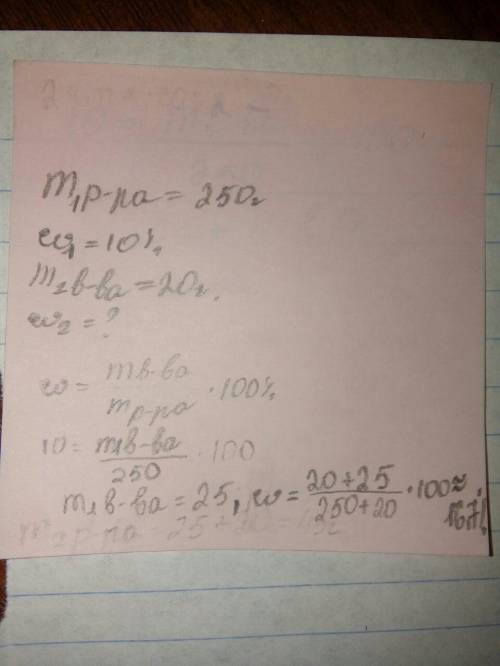 m₁р-ра = 250г
ω₁ = 10%
m₂в-ва = 20г.
ω₂ = ?
ω = mв-ва / mр-ра · 100%
10 = m₁в-ва / 250 · 100
m₁в-ва = 25, ω = 20+25 / 250+20 · 100 ≈ 16,7%
р-ра = 25 +